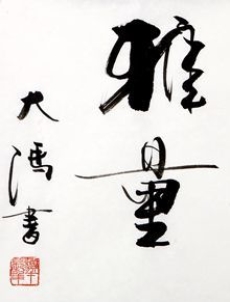 雅量
大鸿書